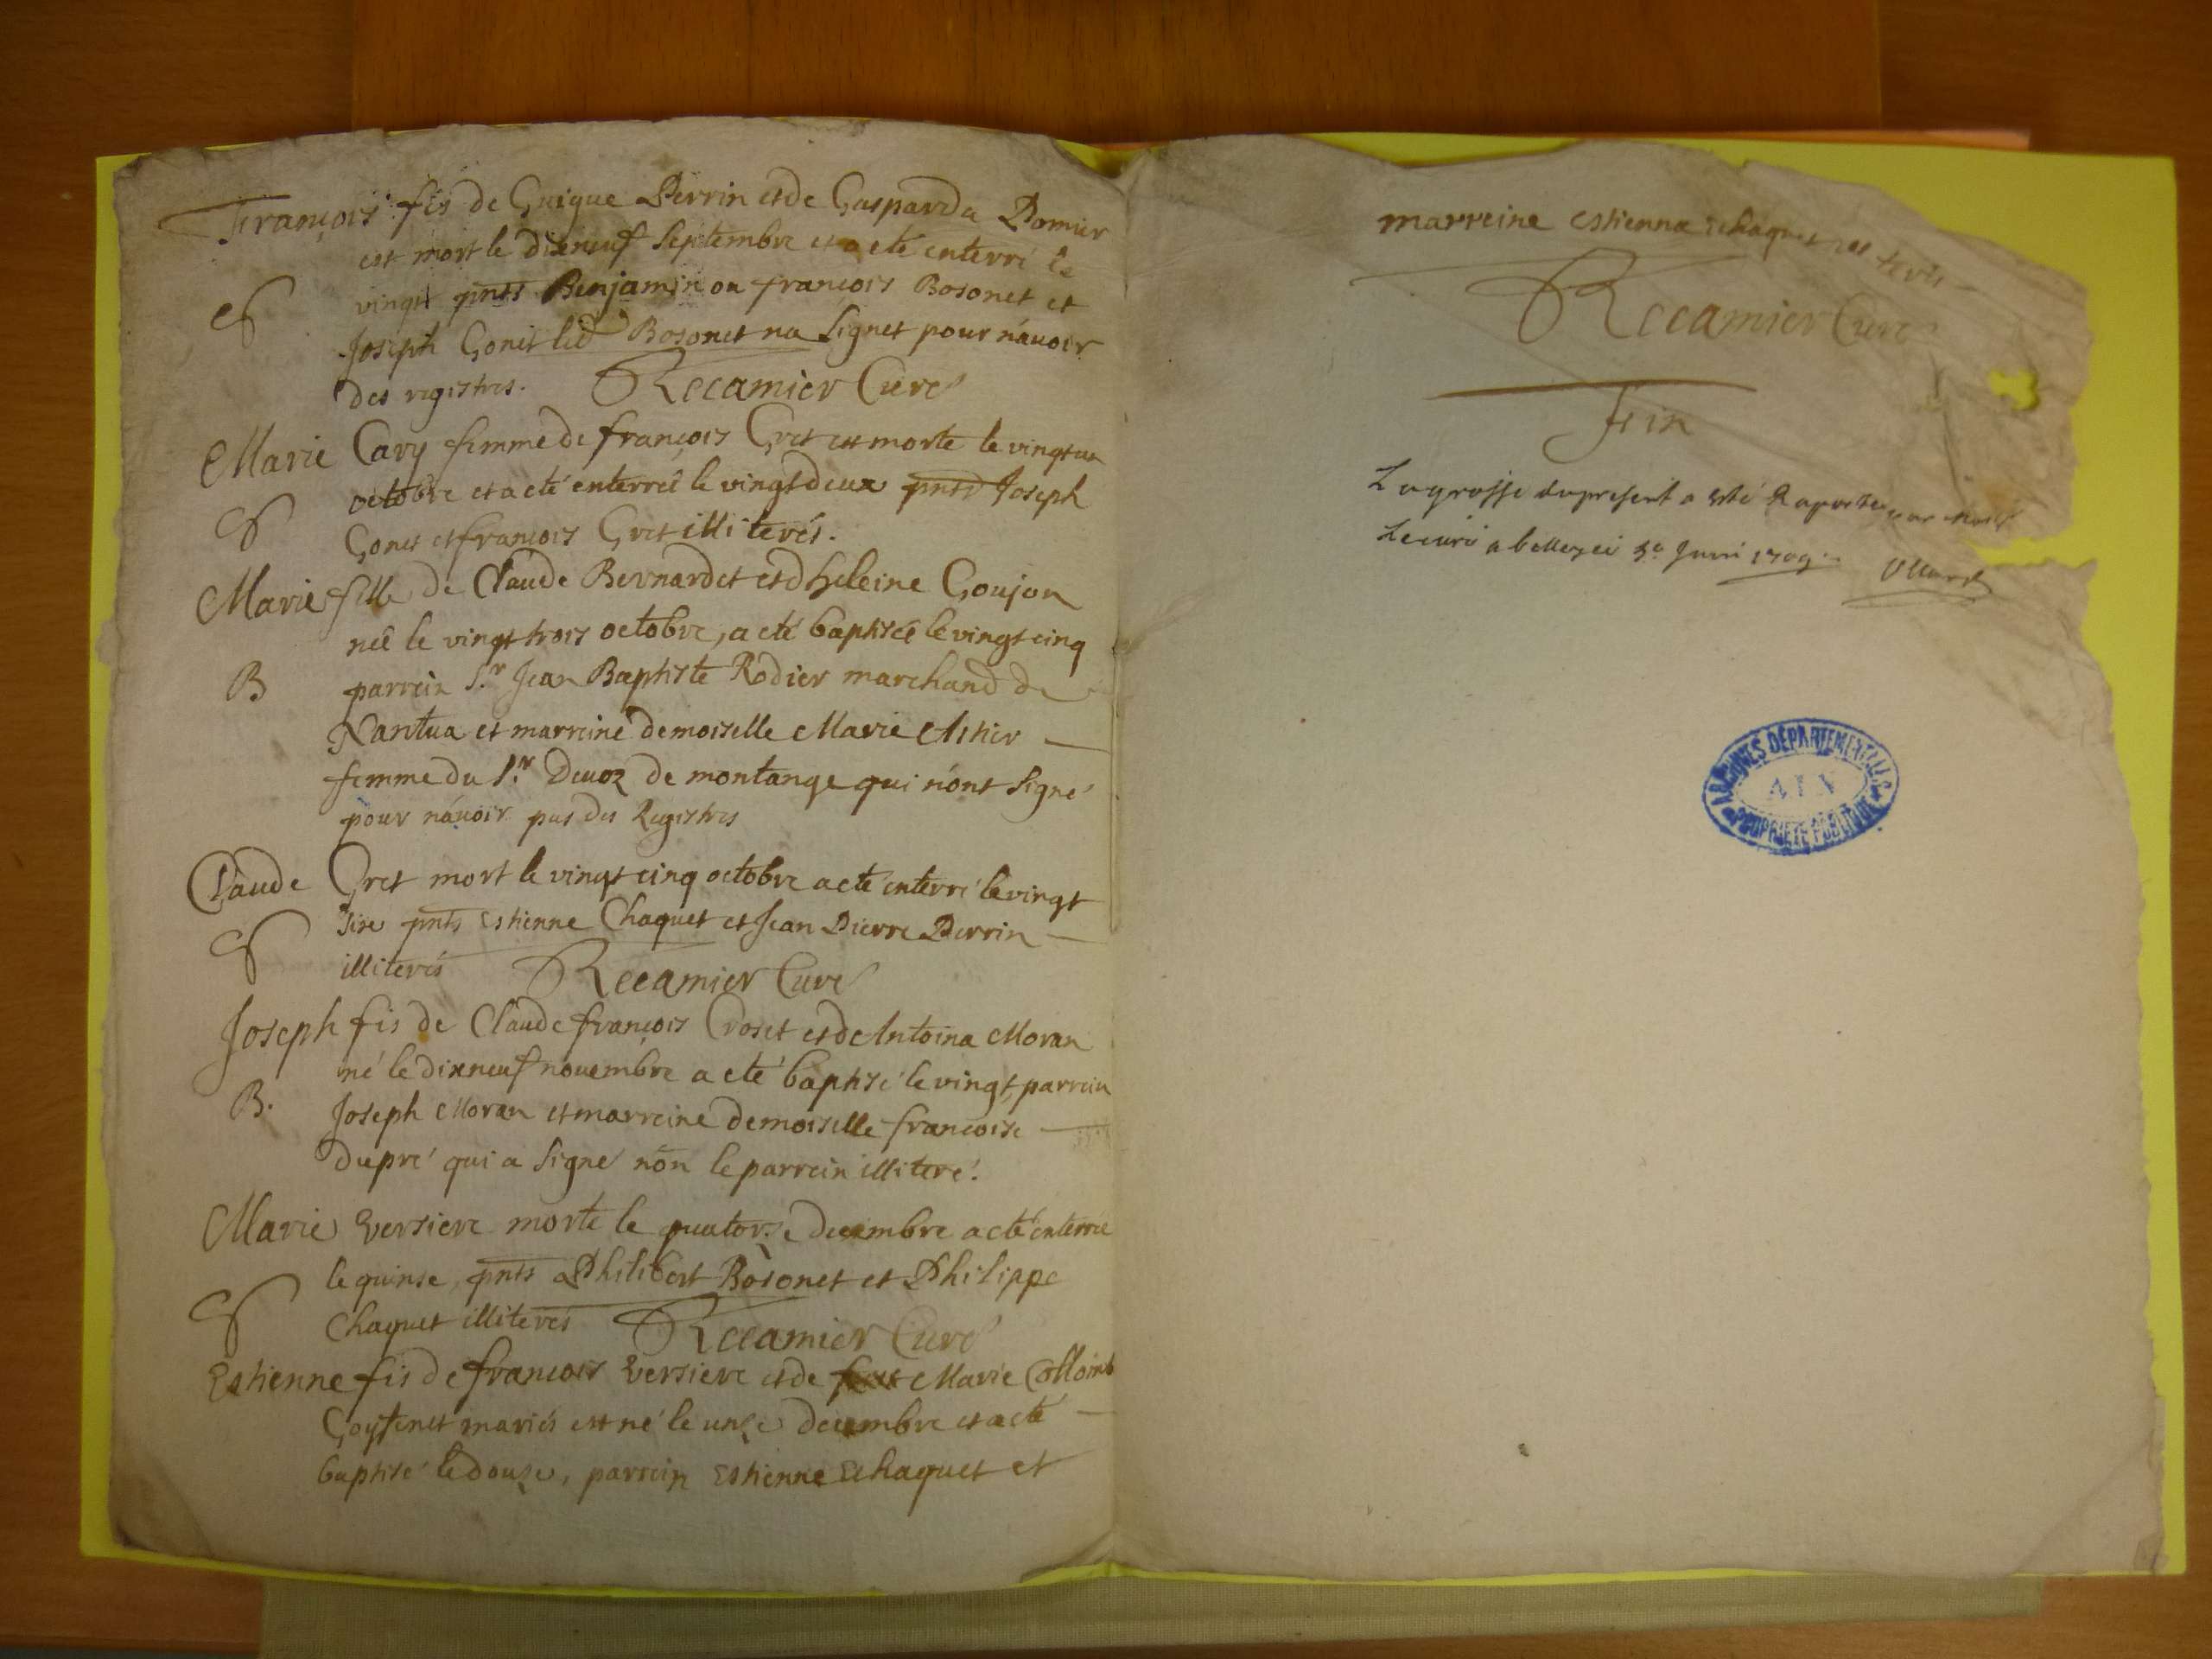 François fis de Guigue Perrin et de Gasparda Pomier
est mort le dixneuf Septembre et a eté enterré le
vingt pnts Benjamin ou françois Bosonet et
Joseph Gonet led Bosonet na Signet pour n'auoir
des registres. Recamier Curé
Marie Cary femme de françois Gret est morte le vingt un
octobre et a eté enterreé le vingt deux pnts Joseph
Gonet et françois Gret illiterés.
Marie fille de Claude Bernardet et d heleine Goujon
neé le vingt trois octobre, a eté baptiseé le vingt cinq
B parrein S.r Jean Baptiste Rodier marchand de
Nantua et marreine demoiselle Marie
femme du S.r Deuoz de montange qui n'ont Signé
pour n'auoir pas des Registres
Claude Gret mort le vingt cinq octobre a eté enterré le vingt
Sixe pnts Estienne Chaquet et Jean Pierre Perrin
illiterés Recamier Curé
Joseph fis de Claude françois Croset et de Antoina Moran
né le dixneuf nouembre a eté baptisé le vingt, parrein
B. Joseph Moran et marreine demoiselle francoise
dupré qui a Signé nōn le parrein illiteré.
Marie Versiere morte le quatorze decembre a eté enterreé
le quinse, pnts Philibert Bosonet et Philippe
Chaquet illiterés Recamier Curé
Estienne fis de francois Versiere et de Marie
mariés est né le unze decembre et a eté
baptisé le douze, parrein Estienne Echaquet et
marreine Estienna
Recamier Curé
Fin
La grosse du present a esté Raportee par
Le curé a belley ce 3e Juin 1709
ARCHIVES DÉPARTEMENTALES
AIN
PROPRIÉTÉ PUBLIQUE